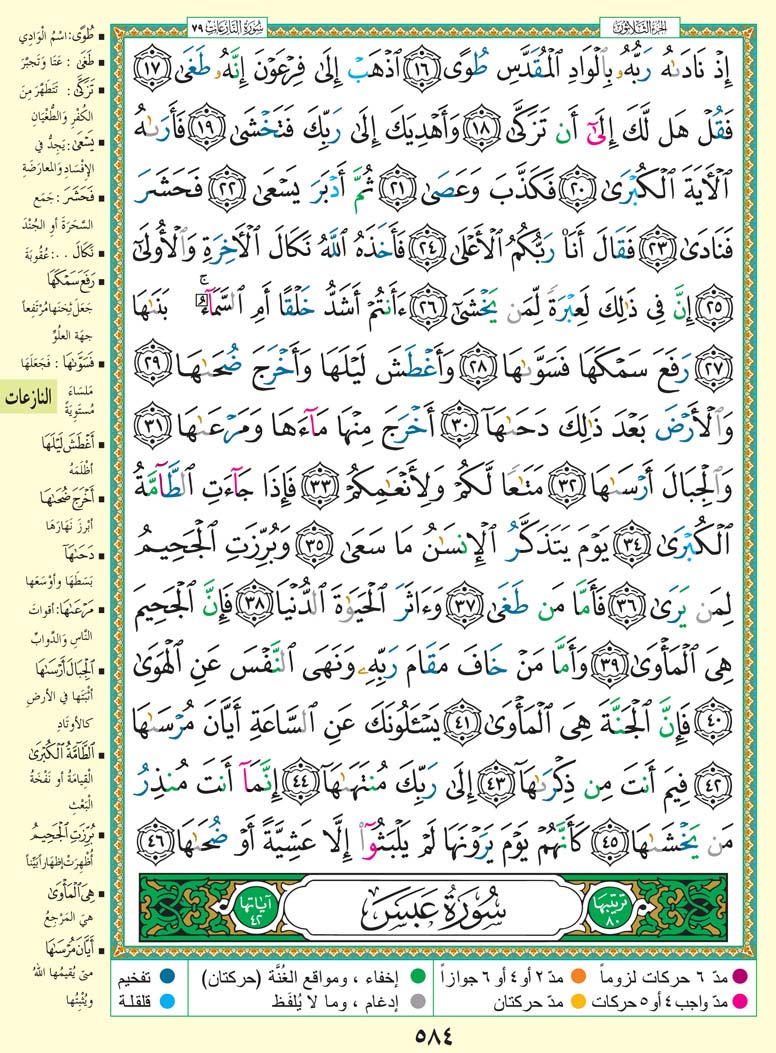 الجزء الثلاثون
سورة النازعات ٧٩
إِذْ نَادَىٰهُ رَبُّهُۥ بِٱلْوَادِ ٱلْمُقَدَّسِ طُوًى ١٦ ٱذْهَبْ إِلَىٰ فِرْعَوْنَ إِنَّهُۥ طَغَىٰ ١٧
فَقُلْ هَل لَّكَ إِلَىٰٓ أَن تَزَكَّىٰ ١٨ وَأَهْدِيَكَ إِلَىٰ رَبِّكَ فَتَخْشَىٰ ١٩ فَأَرَىٰهُ
ٱلْءَايَةَ ٱلْكُبْرَىٰ ٢٠ فَكَذَّبَ وَعَصَىٰ ٢١ ثُمَّ أَدْبَرَ يَسْعَىٰ ٢٢ فَحَشَرَ
فَنَادَىٰ ٢٣ فَقَالَ أَنَا۠ رَبُّكُمُ ٱلْأَعْلَىٰ ٢٤ فَأَخَذَهُ ٱللَّهُ نَكَالَ ٱلْءَاخِرَةِ وَٱلْأُولَىٰٓ
٢٥ إِنَّ فِى ذَٰلِكَ لَعِبْرَةً لِّمَن يَخْشَىٰٓ ٢٦ ءَأَنتُمْ أَشَدُّ خَلْقًا أَمِ ٱلسَّمَآءُ ۚ بَنَىٰهَا
٢٧ رَفَعَ سَمْكَهَا فَسَوَّىٰهَا ٢٨ وَأَغْطَشَ لَيْلَهَا وَأَخْرَجَ ضُحَىٰهَا ٢٩
وَٱلْأَرْضَ بَعْدَ ذَٰلِكَ دَحَىٰهَآ ٣٠ أَخْرَجَ مِنْهَا مَآءَهَا وَمَرْعَىٰهَا ٣١
وَٱلْجِبَالَ أَرْسَىٰهَا ٣٢ مَتَٰعًا لَّكُمْ وَلِأَنْعَٰمِكُمْ ٣٣ فَإِذَا جَآءَتِ ٱلطَّآمَّةُ
ٱلْكُبْرَىٰ ٣٤ يَوْمَ يَتَذَكَّرُ ٱلْإِنسَٰنُ مَا سَعَىٰ ٣٥ وَبُرِّزَتِ ٱلْجَحِيمُ
لِمَن يَرَىٰ ٣٦ فَأَمَّا مَن طَغَىٰ ٣٧ وَءَاثَرَ ٱلْحَيَوٰةَ ٱلدُّنْيَا ٣٨ فَإِنَّ ٱلْجَحِيمَ
هِىَ ٱلْمَأْوَىٰ ٣٩ وَأَمَّا مَنْ خَافَ مَقَامَ رَبِّهِۦ وَنَهَى ٱلنَّفْسَ عَنِ ٱلْهَوَىٰ
٤٠ فَإِنَّ ٱلْجَنَّةَ هِىَ ٱلْمَأْوَىٰ ٤١ يَسْـَٔلُونَكَ عَنِ ٱلسَّاعَةِ أَيَّانَ مُرْسَىٰهَا
٤٢ فِيمَ أَنتَ مِن ذِكْرَىٰهَآ ٤٣ إِلَىٰ رَبِّكَ مُنتَهَىٰهَآ ٤٤ إِنَّمَآ أَنتَ مُنذِرُ
مَن يَخْشَىٰهَا ٤٥ كَأَنَّهُمْ يَوْمَ يَرَوْنَهَا لَمْ يَلْبَثُوٓا۟ إِلَّا عَشِيَّةً أَوْ ضُحَىٰهَا ٤٦
ترتيبها ٨٠
سُورَةُ عَبَسَ
آياتها ٤٢
طُوًى: اسْمُ الْوَادِي
طَغَىٰ: عَتَا وَتَجَبَّرَ
تَزَكَّىٰ: تَتَطَهَّرَ مِنَ
الكُفْرِ وَالطُّغْيَانِ
يَسْعَىٰ: يَجِدُّ فِي
الإِفْسَادِ وَالمُعَارَضَةِ
فَحَشَرَ: جَمَعَ
السَّحَرَةَ أَوِ الجُنْدَ
نَكَالَ ..: عُقُوبَةَ
رَفَعَ سَمْكَهَا
جَعَلَ ثِخَنَهَا مُرْتَفِعاً
جِهَةَ العُلُوِّ
فَسَوَّىٰهَا: فَجَعَلَهَا
مَلْسَاءَ
مُسْتَوِيَةً
النازعات
أَغْطَشَ لَيْلَهَا
أَظْلَمَهُ
أَخْرَجَ ضُحَىٰهَا
أَبْرَزَ نَهَارَهَا
دَحَىٰهَآ
بَسَطَهَا وَأَوْسَعَهَا
مَرْعَىٰهَا: أَقْوَاتَ
النَّاسِ وَالدَّوَابِّ
ٱلْجِبَالَ أَرْسَىٰهَا
أَثْبَتَهَا فِي الأَرْضِ
كَالأَوْتَادِ
ٱلطَّآمَّةُ ٱلْكُبْرَىٰ
القِيَامَةُ أَوْ نَفْخَةُ
الْبَعْثِ
بُرِّزَتِ ٱلْجَحِيمُ
أُظْهِرَتْ إِظْهَاراً بَيِّناً
هِىَ ٱلْمَأْوَىٰ
هِيَ المَرْجِعُ
أَيَّانَ مُرْسَىٰهَا
مَتَى يُقِيمُهَا اللهُ
وَيُثْبِتُهَا
مدّ ٦ حركات لزوماً
مدّ ٢ أو ٤ أو ٦ جوازاً
إخفاء ، ومواقع الغُنَّة (حركتان)
تفخيم
مدّ واجب ٤ أو ٥ حركات
مدّ حركتان
إدغام ، وما لا يُلفَظ
قلقلة
٥٨٤